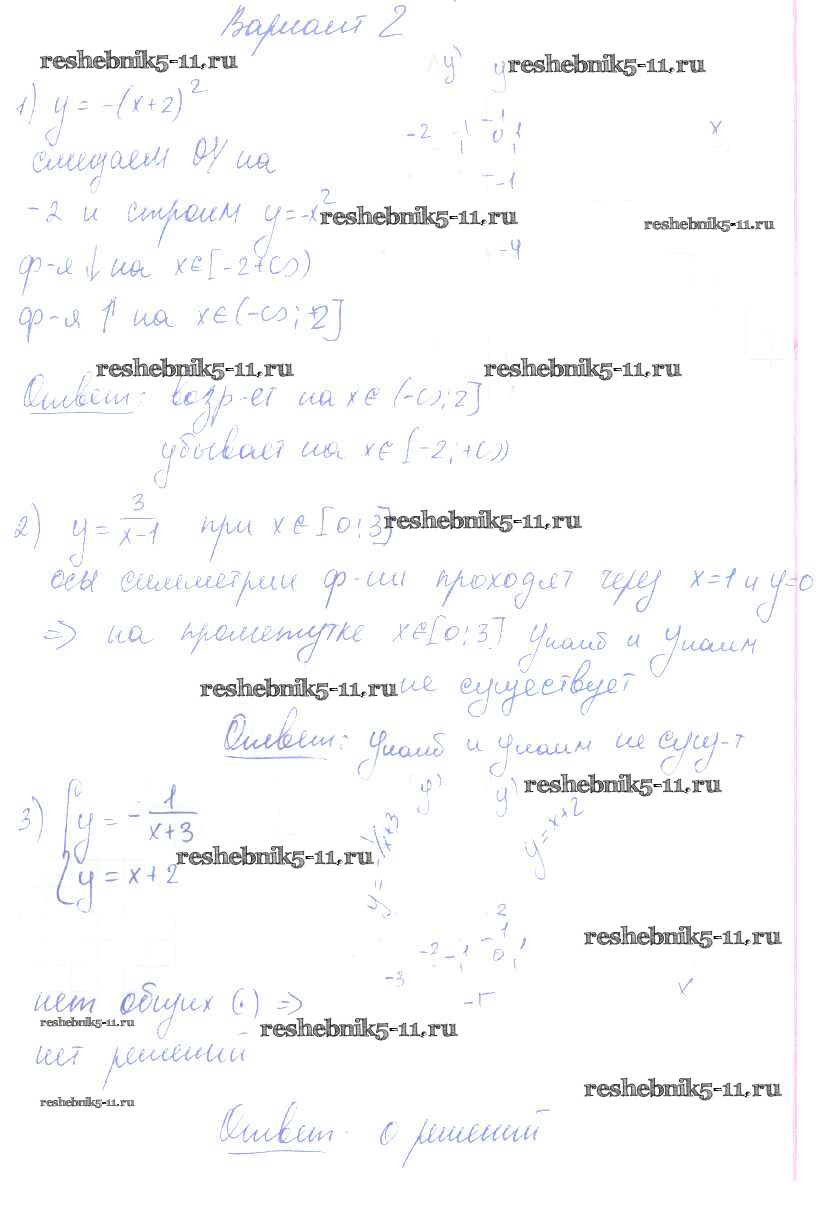 Вариант 2
reshebnik5-11.ru
y
y
reshebnik5-11.ru
1) y = -(x+2)²
-2 -1 1 0 1 x
смещаем OY на
-1
-2 и строим y=-x²
reshebnik5-11.ru
reshebnik5-11.ru
-4
ф-я ↓ на x∈[-2+∞)
ф-я ↑ на x∈(-∞;-2]
reshebnik5-11.ru
reshebnik5-11.ru
Ответ: возр-ет на x∈(-∞;2]
убывает на x∈[-2;+∞)
2) y = 3/(x-1) при x∈[0;3]
reshebnik5-11.ru
осы симметрии ф-ии проходят через x=1 и y=0
=> на прометутке x∈[0;3] yнаиб и yнаим
reshebnik5-11.ru
не существует
Ответ: yнаиб и yнаим не сущ-т
reshebnik5-11.ru
y
y
3) { y = -1/(x+3)
y = x+2
reshebnik5-11.ru
y = -1/x+3
y = x+2
2
1
reshebnik5-11.ru
-3 -2 -1 0 1
-1
x
нет общих (·) =>
reshebnik5-11.ru
reshebnik5-11.ru
нет решений
reshebnik5-11.ru
reshebnik5-11.ru
Ответ: 0 решений